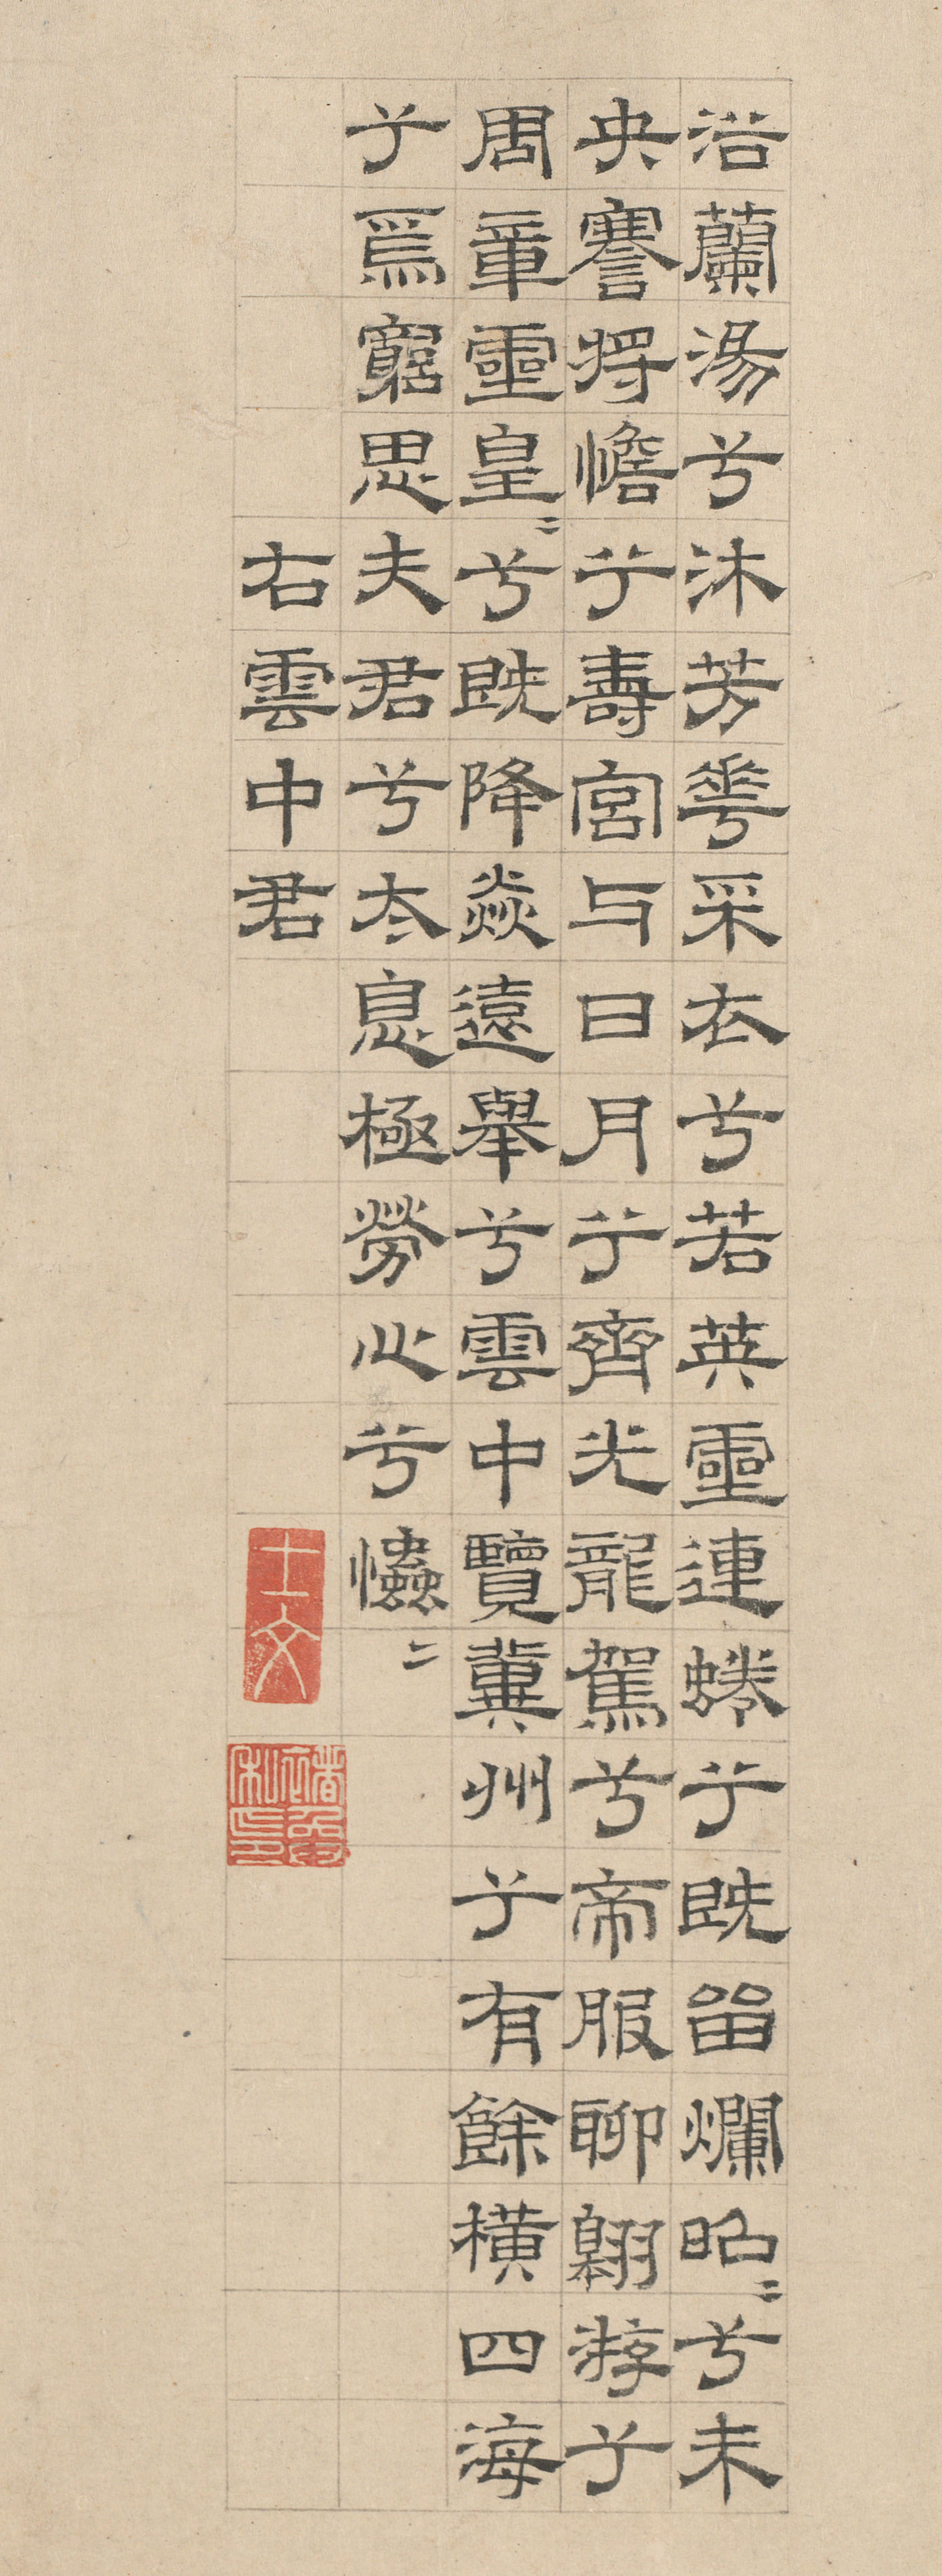 浴蘭湯兮沐芳華采衣兮若英靈連蜷兮既畱爛昭〻兮未
央謇將憺兮壽宮与日月兮齊光龍駕兮帝服聊翱游兮
周章靈皇〻兮既降焱遠舉兮雲中覽冀州兮有餘橫四海
兮焉窮思夫君兮太息極勞心兮𢥞〻
右雲中君
士文